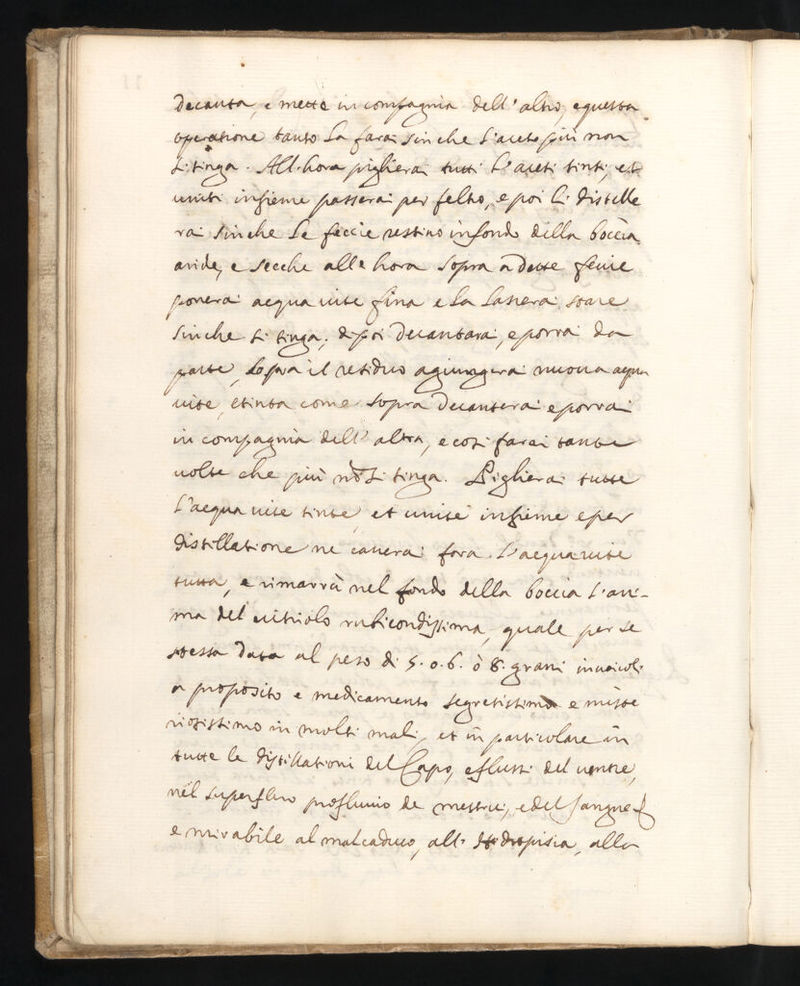 decanta, e mette in compagnia dell' altro, e questa
operatione tanto la farai sin che l'aceto più non
si tinga. All'hora piglierai tutti l'aceti tinti, et
uniti insieme passerai per feltro, e poi li distille
rai sin che le feccie restino in fondo della boccia
aride, e secche all hora sopra a dette feccie
ponerai acqua vite fina e la lasserai stare
sin che si tinga, di poi decantarai, e porrai da
parte, sopra il residuo agiungerai nuova acqua
vite, e tinta come sopra decanterai e porrai
in compagnia dell' altra, e così farai tante
volte che più nõ si tinga. Piglierai tutte
l'acqua vite tinte, et unite insieme e per
distillatione ne caverai fora l'acqua vite
tutta, e rimarrà nel fondo della boccia l'ani-
ma del vitriolo rubicondissima, quale per se
stessa data al peso di 5. o. 6. ò 8. grani in veicoli
a proposito e medicamento segretissimo e miste
riosissimo in molti mali, et in particolare in
tutte le distillationi del Capo, e flussi del ventre,
nel superfluo profluvio de mestrui, e del sangue
e mirabile al malcaduco, all' Idropisia, alla